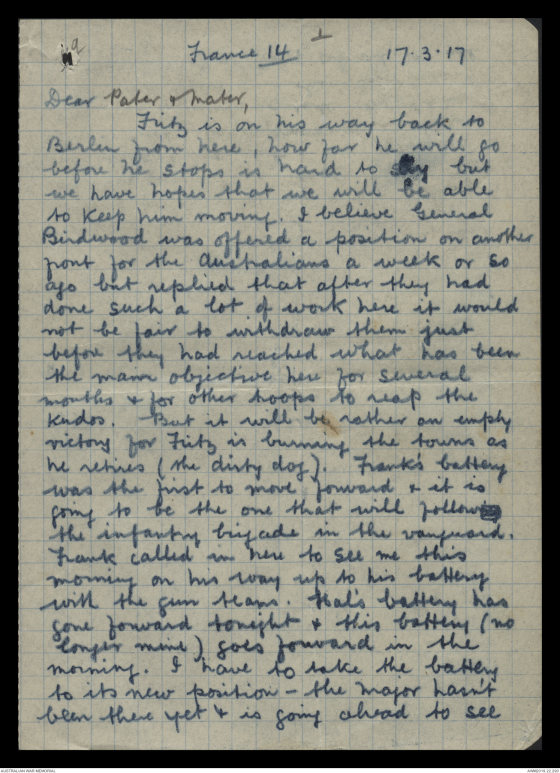 1
France 14
17.3.17
Dear Pater & Mater,
Fritz is on his way back to
Berlin from here, how far he will go
before he stops is hard to say but
we have hopes that we will be able
to keep him moving. I believe General
Birdwood was offered a position on another
front for the Australians a week or so
ago but replied that after they had
done such a lot of work here it would
not be fair to withdraw them just
before they had reached what has been
the main objective here for several
months & for other troops to reap the
kudos. But it will be rather an empty
victory for Fritz is burning the towns as
he retires (the dirty dog). Frank's battery
was the first to move forward & it is
going to be the one that will follow
the infantry brigade in the vanguard.
Frank called in here to see me this
morning on his way up to his battery
with the gun teams. Hal's battery has
gone forward tonight & this battery (no
longer mine) goes forward in the
morning. I have to take the battery
to its new position – the Major hasn't
been there yet & is going ahead to see
AUSTRALIAN WAR MEMORIAL